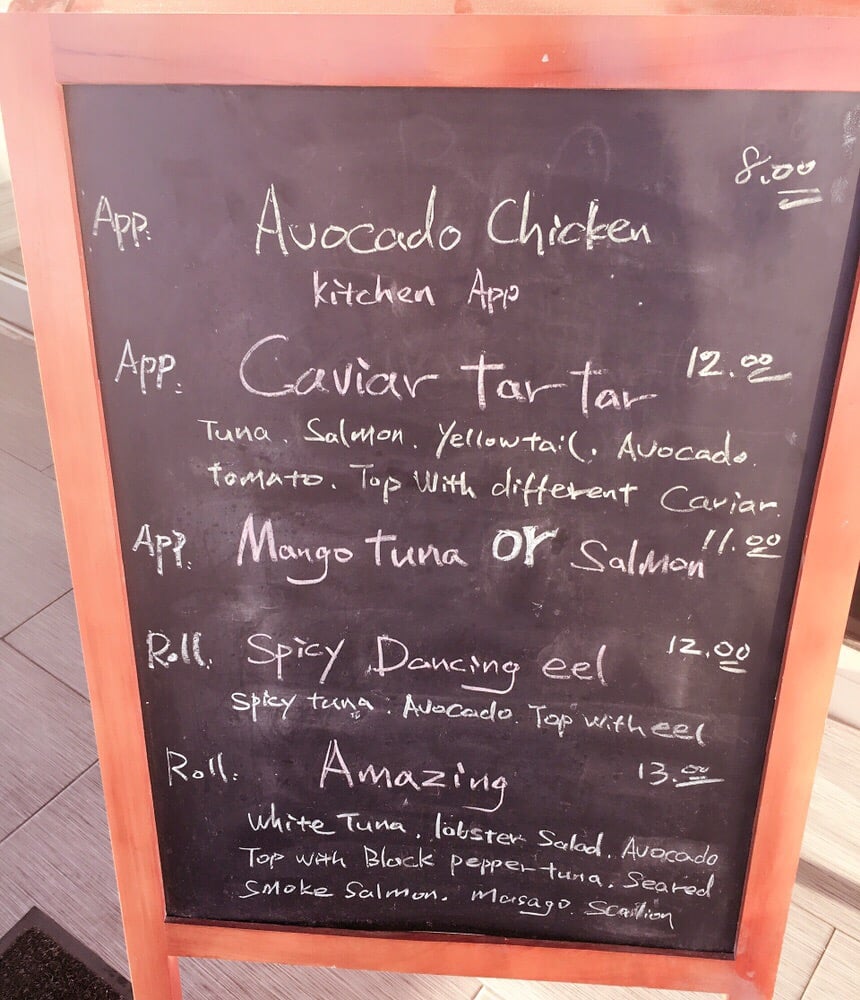 8.00
App. Avocado Chicken
kitchen App
App. Caviar tartar 12.00
Tuna. Salmon. Yellowtail. Avocado.
tomato. Top With different Caviar.
App. Mango tuna or Salmon 11.00
Roll. Spicy Dancing eel 12.00
Spicy tuna. Avocado. Top with eel
Roll. Amazing 13.00
White Tuna. lobster Salad. Avocado
Top with Black pepper tuna. Seared
Smoke Salmon. Masago. Scallion